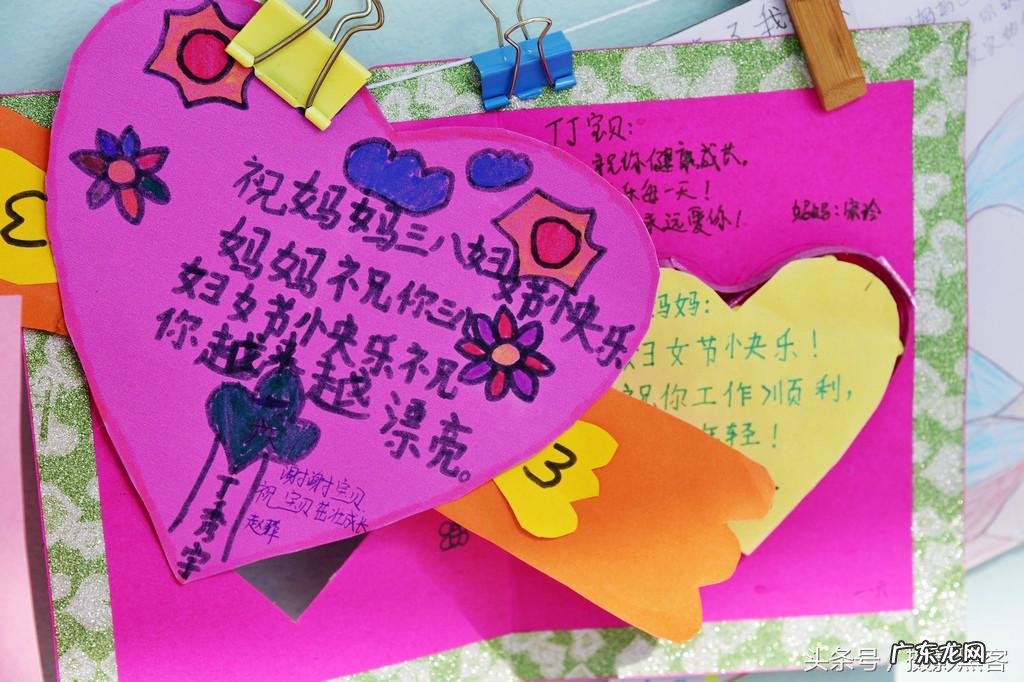 祝妈妈三八妇女节快乐
妈妈祝你三八
妇女节快乐祝
你越来越漂亮。
谢谢宝贝
祝宝贝茁壮成长
赵
3
3
丁丁宝贝:
祝你健康成长。
乐每一天!
永远爱你!
妈妈:
妈妈:
妇女节快乐!
祝你工作顺利,
年轻!
一六
了我
头条号 / 摄影点客
广东龙网